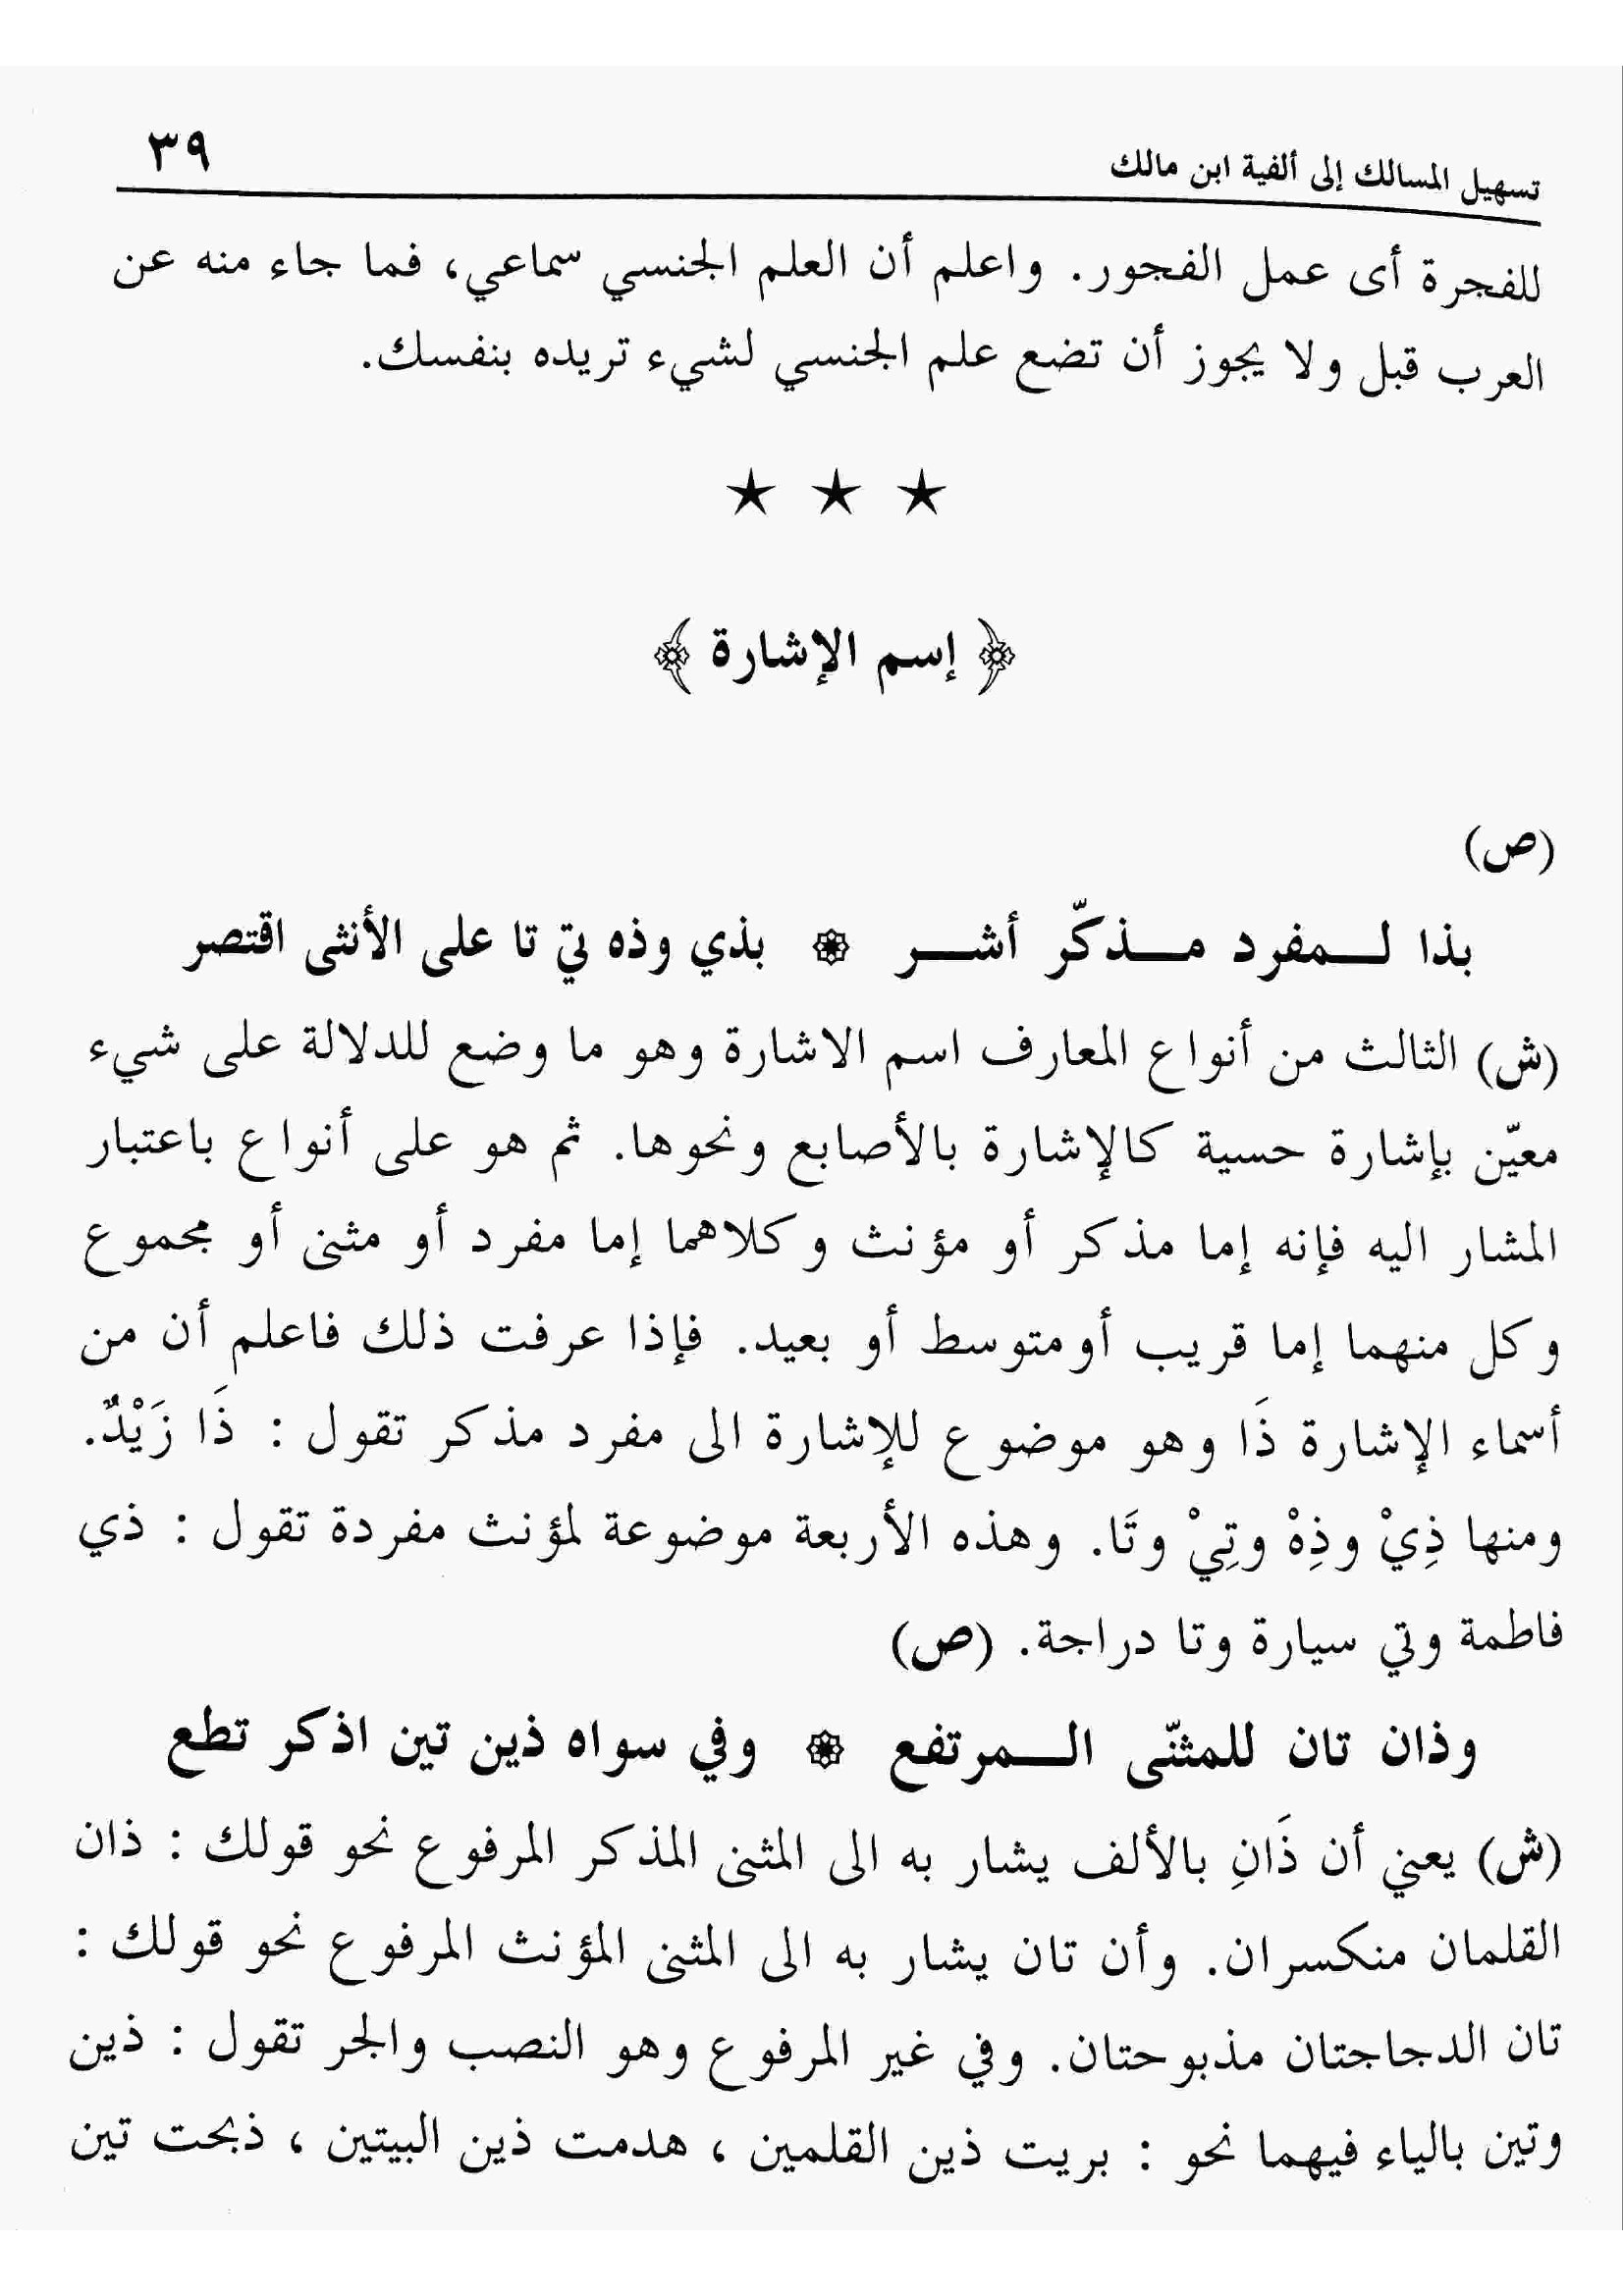 تسهيل المسالك إلى ألفية ابن مالك ٣٩
للفجرة أى عمل الفجور. واعلم أن العلم الجنسي سماعي، فما جاء منه عن
العرب قبل ولا يجوز أن تضع علم الجنسي لشيء تريده بنفسك.
★ ★ ★
﴿ إسم الإشارة ﴾
(ص)
بذا لـمفرد مـذكّر أشـر ۞ بذي وذه تي تا على الأنثى اقتصر
(ش) الثالث من أنواع المعارف اسم الاشارة وهو ما وضع للدلالة على شيء
معيّن بإشارة حسية كالإشارة بالأصابع ونحوها. ثم هو على أنواع باعتبار
المشار اليه فإنه إما مذكر أو مؤنث وكلاهما إما مفرد أو مثنى أو مجموع
وكل منهما إما قريب أومتوسط أو بعيد. فإذا عرفت ذلك فاعلم أن من
أسماء الإشارة ذَا وهو موضوع للإشارة الى مفرد مذكر تقول : ذَا زَيْدٌ.
ومنها ذِيْ وذِهْ وتِيْ وتَا. وهذه الأربعة موضوعة لمؤنث مفردة تقول : ذي
فاطمة وتي سيارة وتا دراجة. (ص)
وذان تان للمثنّى الـمرتفع ۞ وفي سواه ذين تين اذكر تطع
(ش) يعني أن ذَانِ بالألف يشار به الى المثنى المذكر المرفوع نحو قولك : ذان
القلمان منكسران. وأن تان يشار به الى المثنى المؤنث المرفوع نحو قولك :
تان الدجاجتان مذبوحتان. وفي غير المرفوع وهو النصب والجر تقول : ذين
وتين بالياء فيهما نحو : بريت ذين القلمين ، هدمت ذين البيتين ، ذبحت تين